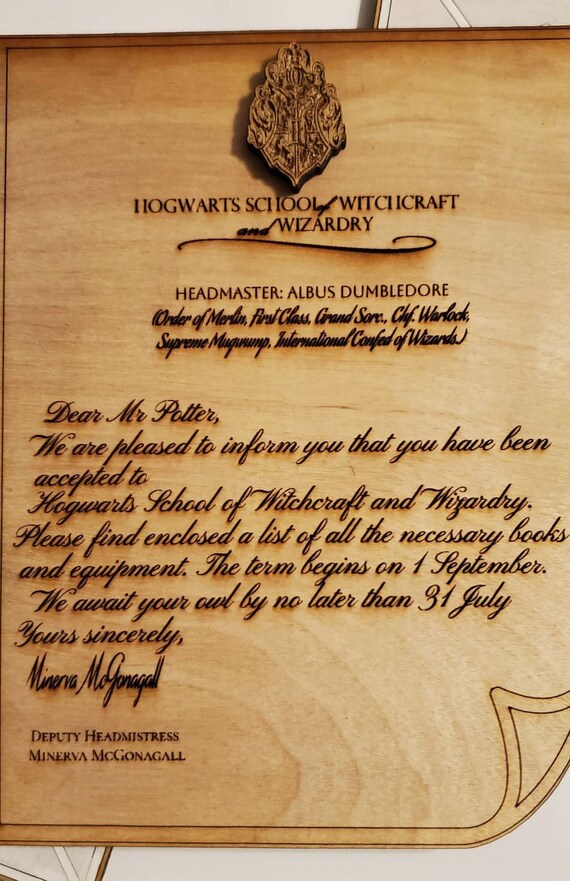 HOGWARTS SCHOOL of WITCHCRAFT
and WIZARDRY
HEADMASTER: ALBUS DUMBLEDORE
(Order of Merlin, First Class, Grand Sorc., Chf. Warlock,
Supreme Mugwump, International Confed of Wizards.)
Dear Mr Potter,
We are pleased to inform you that you have been
accepted to
Hogwarts School of Witchcraft and Wizardry.
Please find enclosed a list of all the necessary books
and equipment. The term begins on 1 September.
We await your owl by no later than 31 July
Yours sincerely,
Minerva McGonagall
DEPUTY HEADMISTRESS
MINERVA MCGONAGALL